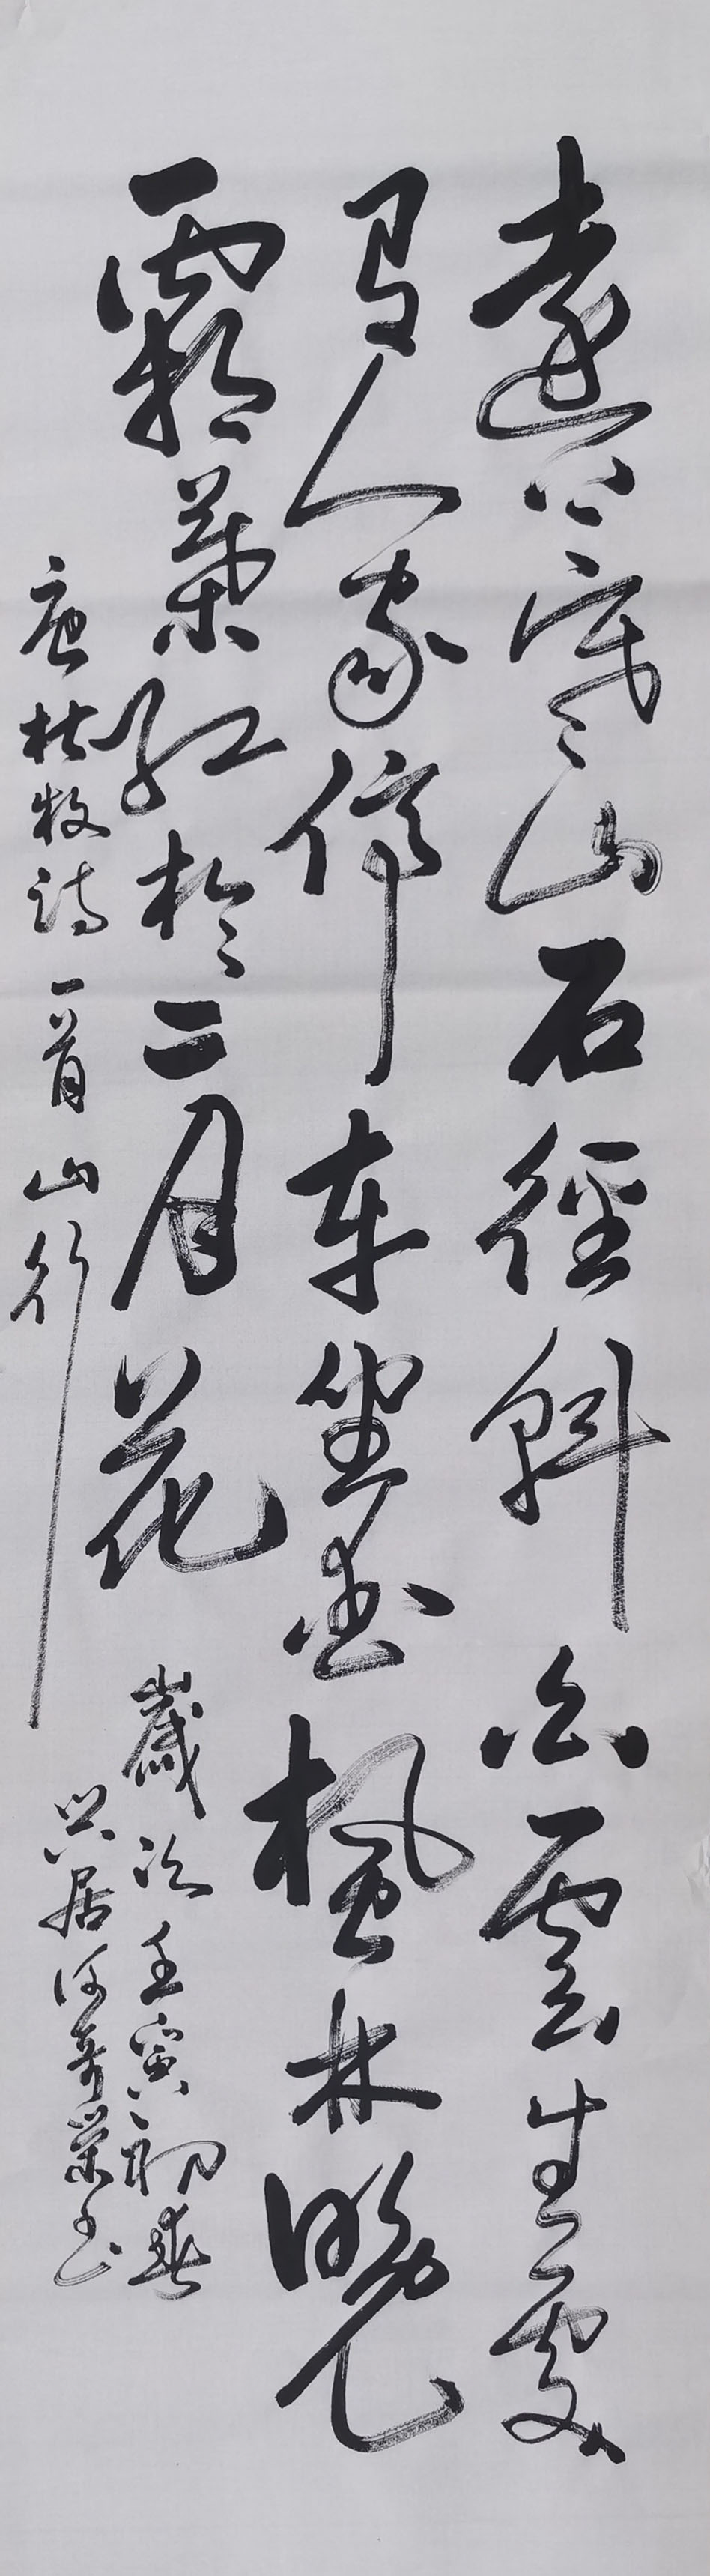 遠上寒山石徑斜白雲生處
有人家停车坐愛楓林晚
霜葉紅於二月花
歲次壬寅初春
唐杜牧詩一首山行
居何奇榮书